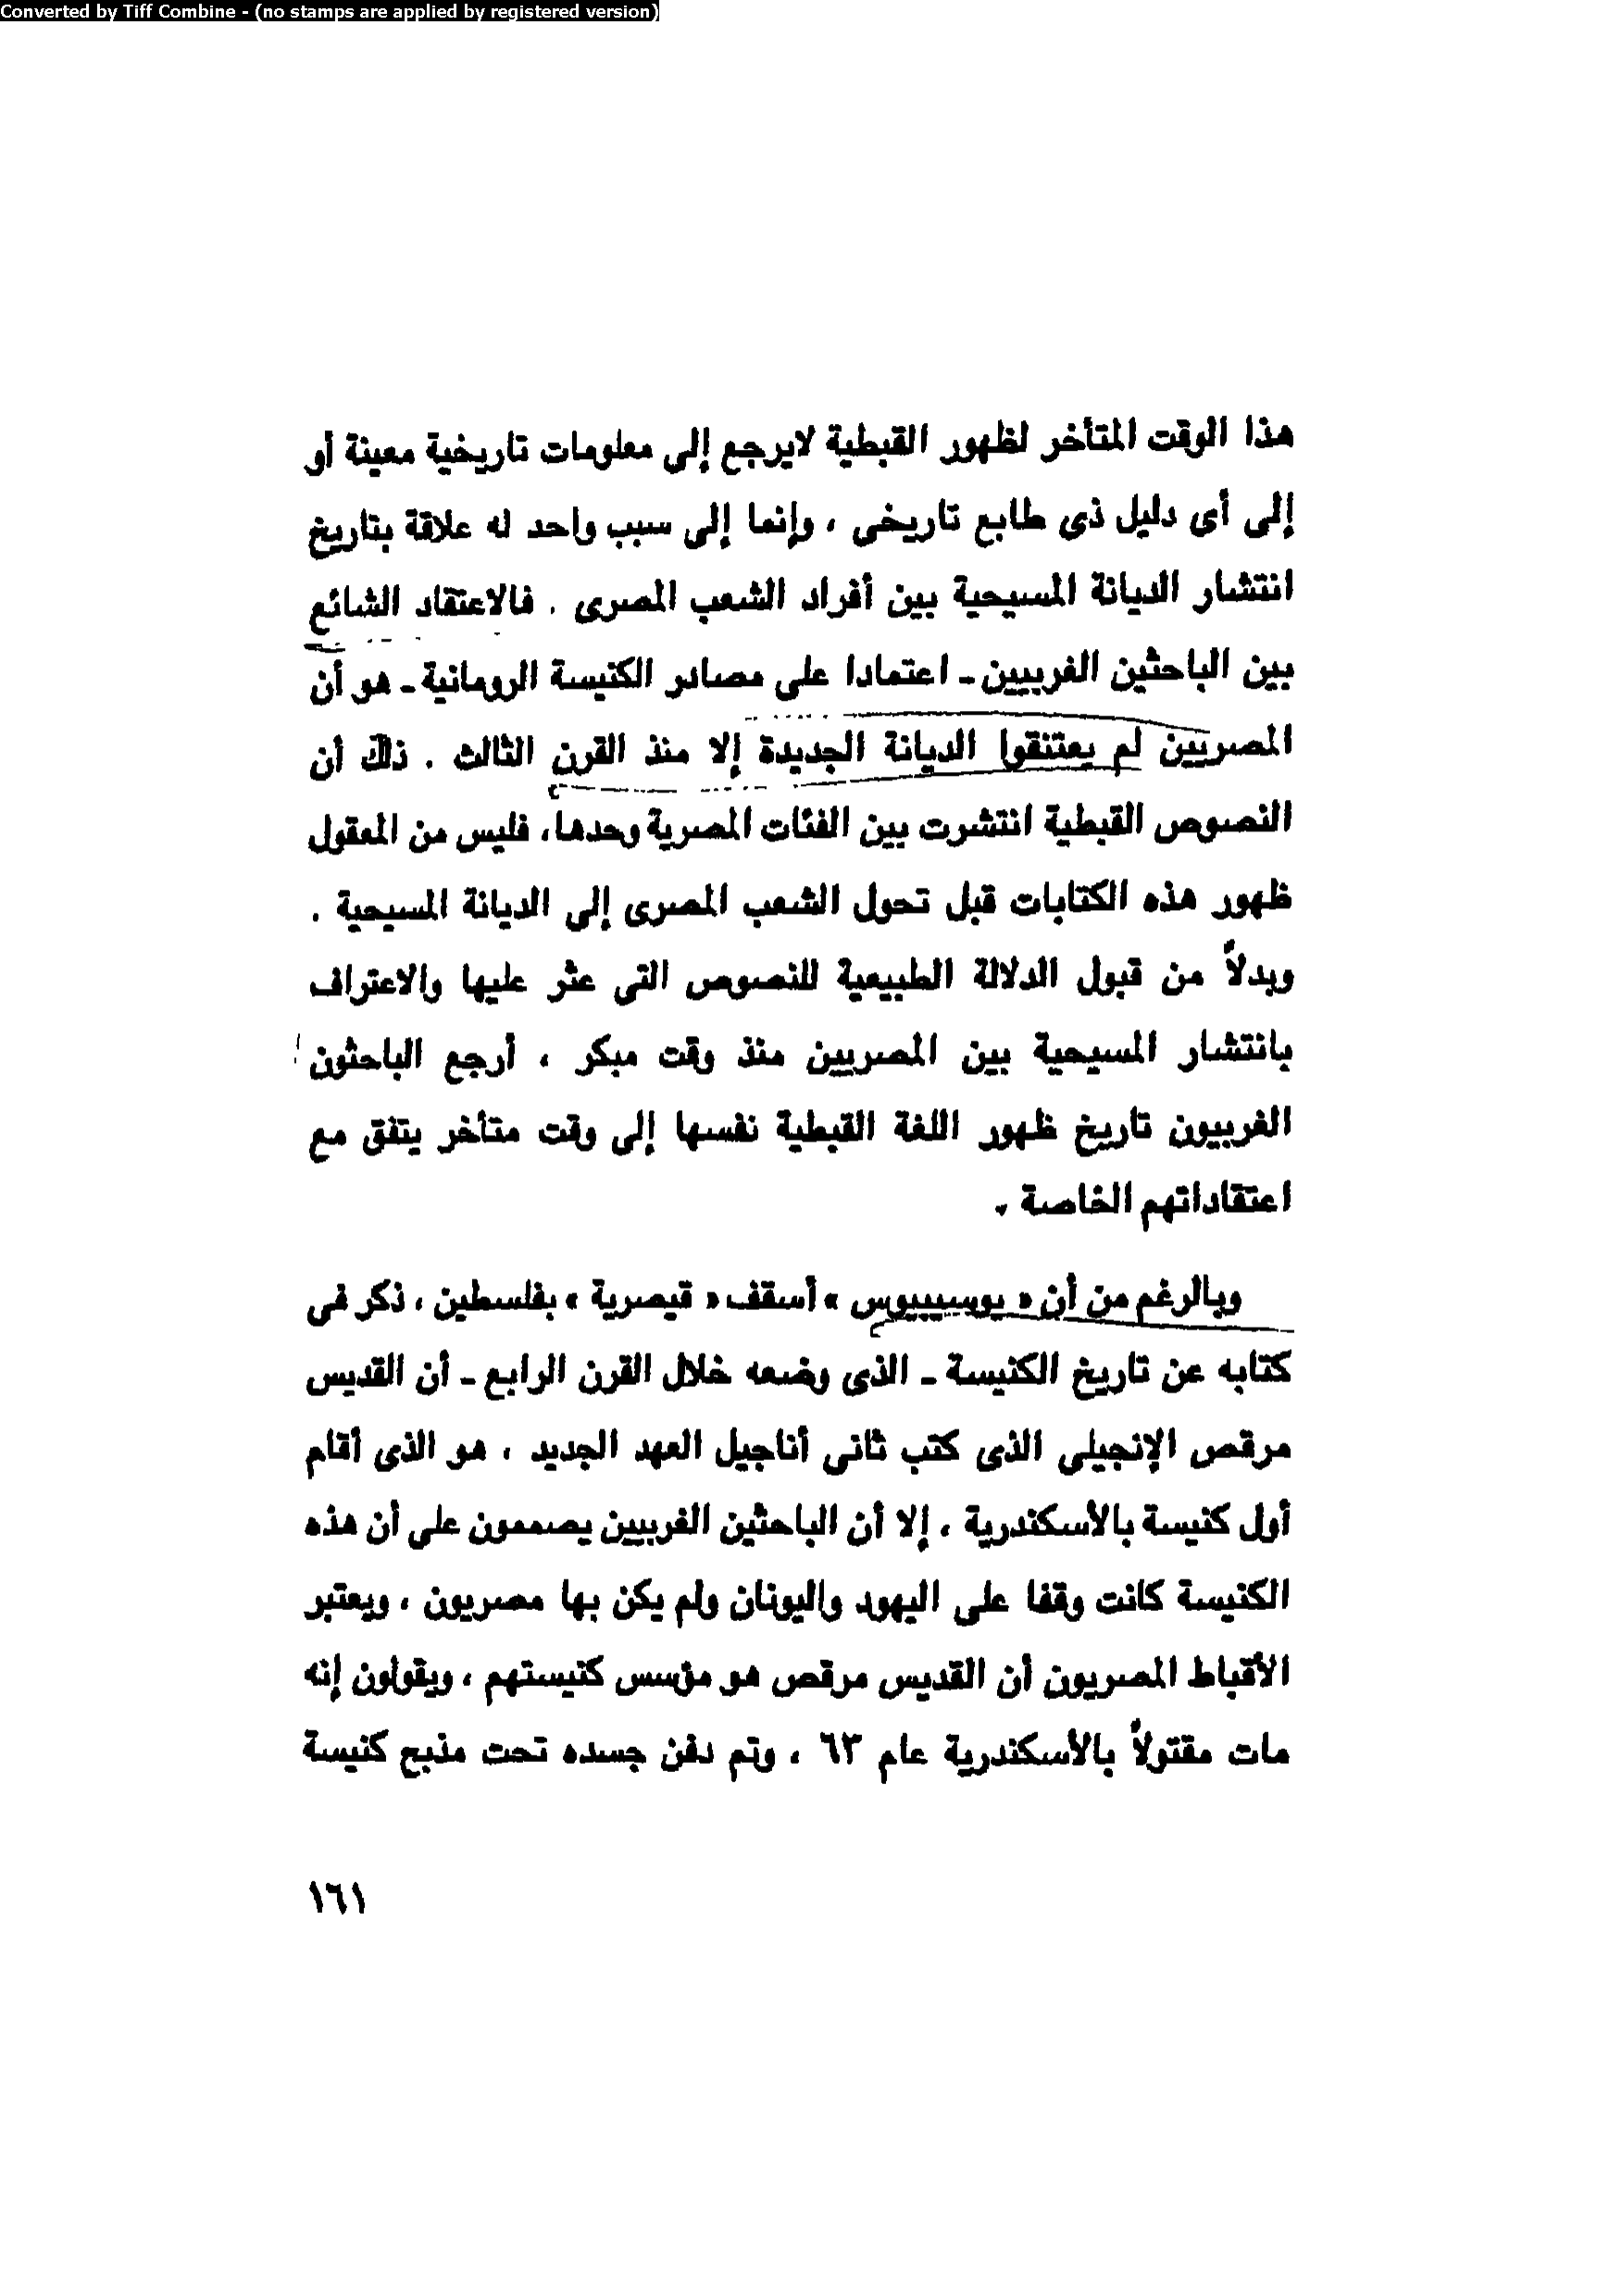 Converted by Tiff Combine - (no stamps are applied by registered version)
هذا الوقت المتأخر لظهور القبطية لايرجع إلى معلومات تاريخية معينة أو
إلى أى دليل ذى طابع تاريخى ، وإنما إلى سبب واحد له علاقة بتاريخ
انتشار الديانة المسيحية بين أفراد الشعب المصرى . فالاعتقاد الشائع
بين الباحثين الغربيين ـ اعتمادا على مصادر الكنيسة الرومانية ـ هو أن
المصريين لم يعتنقوا الديانة الجديدة إلا منذ القرن الثالث . ذلك أن
النصوص القبطية انتشرت بين الفئات المصرية وحدها، فليس من المعقول
ظهور هذه الكتابات قبل تحول الشعب المصرى إلى الديانة المسيحية .
وبدلاً من قبول الدلالة الطبيعية للنصوص التى عثر عليها والاعتراف
بانتشار المسيحية بين المصريين منذ وقت مبكر ، أرجع الباحثون
الغربيون تاريخ ظهور اللغة القبطية نفسها إلى وقت متأخر يتفق مع
اعتقاداتهم الخاصة .
وبالرغم من أن « يوسيبيوس » أسقف « قيصرية » بفلسطين ، ذكر فى
كتابه عن تاريخ الكنيسة ـ الذى وضعه خلال القرن الرابع ـ أن القديس
مرقص الإنجيلى الذى كتب ثانى أناجيل العهد الجديد ، هو الذى أقام
أول كنيسة بالأسكندرية ، إلا أن الباحثين الغربيين يصممون على أن هذه
الكنيسة كانت وقفا على اليهود واليونان ولم يكن بها مصريون ، ويعتبر
الأقباط المصريون أن القديس مرقص هو مؤسس كنيستهم ، ويقولون إنه
مات مقتولاً بالأسكندرية عام ٦٣ ، وتم دفن جسده تحت مذبح كنيسة
١٦١